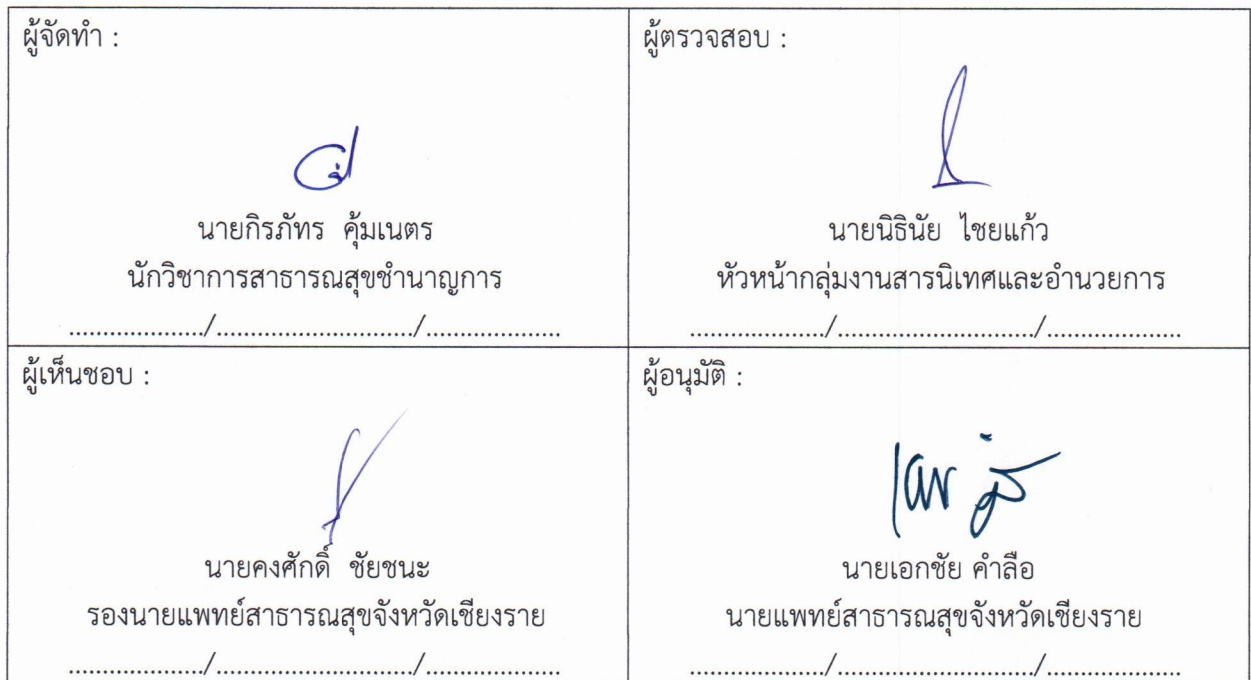 ผู้จัดทำ :
นายกิรภัทร คุ้มเนตร
นักวิชาการสาธารณสุขชำนาญการ
..................../............................./....................
ผู้ตรวจสอบ :
นายนิธินัย ไชยแก้ว
หัวหน้ากลุ่มงานสารนิเทศและอำนวยการ
..................../............................./....................
ผู้เห็นชอบ :
นายคงศักดิ์ ชัยชนะ
รองนายแพทย์สาธารณสุขจังหวัดเชียงราย
..................../............................./....................
ผู้อนุมัติ :
นายเอกชัย คำลือ
นายแพทย์สาธารณสุขจังหวัดเชียงราย
..................../............................./....................